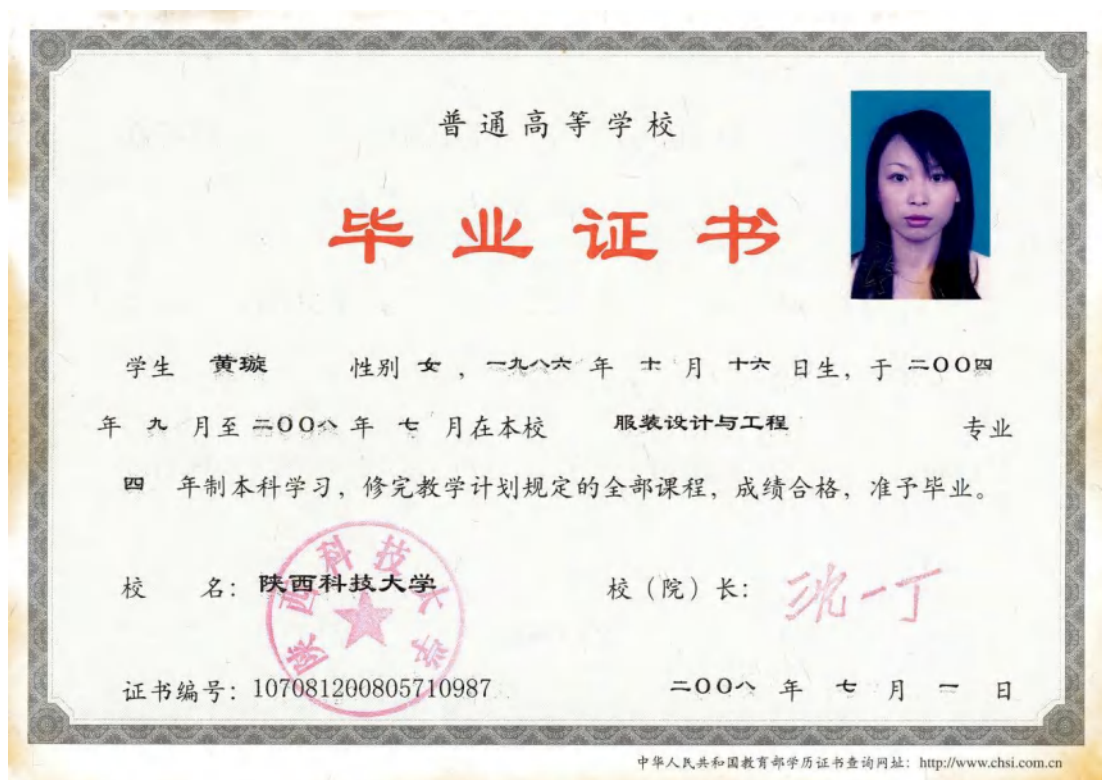 普通高等学校
毕业证书
学生 黄璇 性别 女，一九八六 年 十 月 十六 日生，于 二〇〇四
年 九 月至 二〇〇八 年 七 月在本校 服装设计与工程 专业
四 年制本科学习，修完教学计划规定的全部课程，成绩合格，准予毕业。
校 名：陕西科技大学 校（院）长：沈一丁
陕西科技大学
证书编号：107081200805710987 二〇〇八 年 七 月 一 日
中华人民共和国教育部学历证书查询网址：http://www.chsi.com.cn